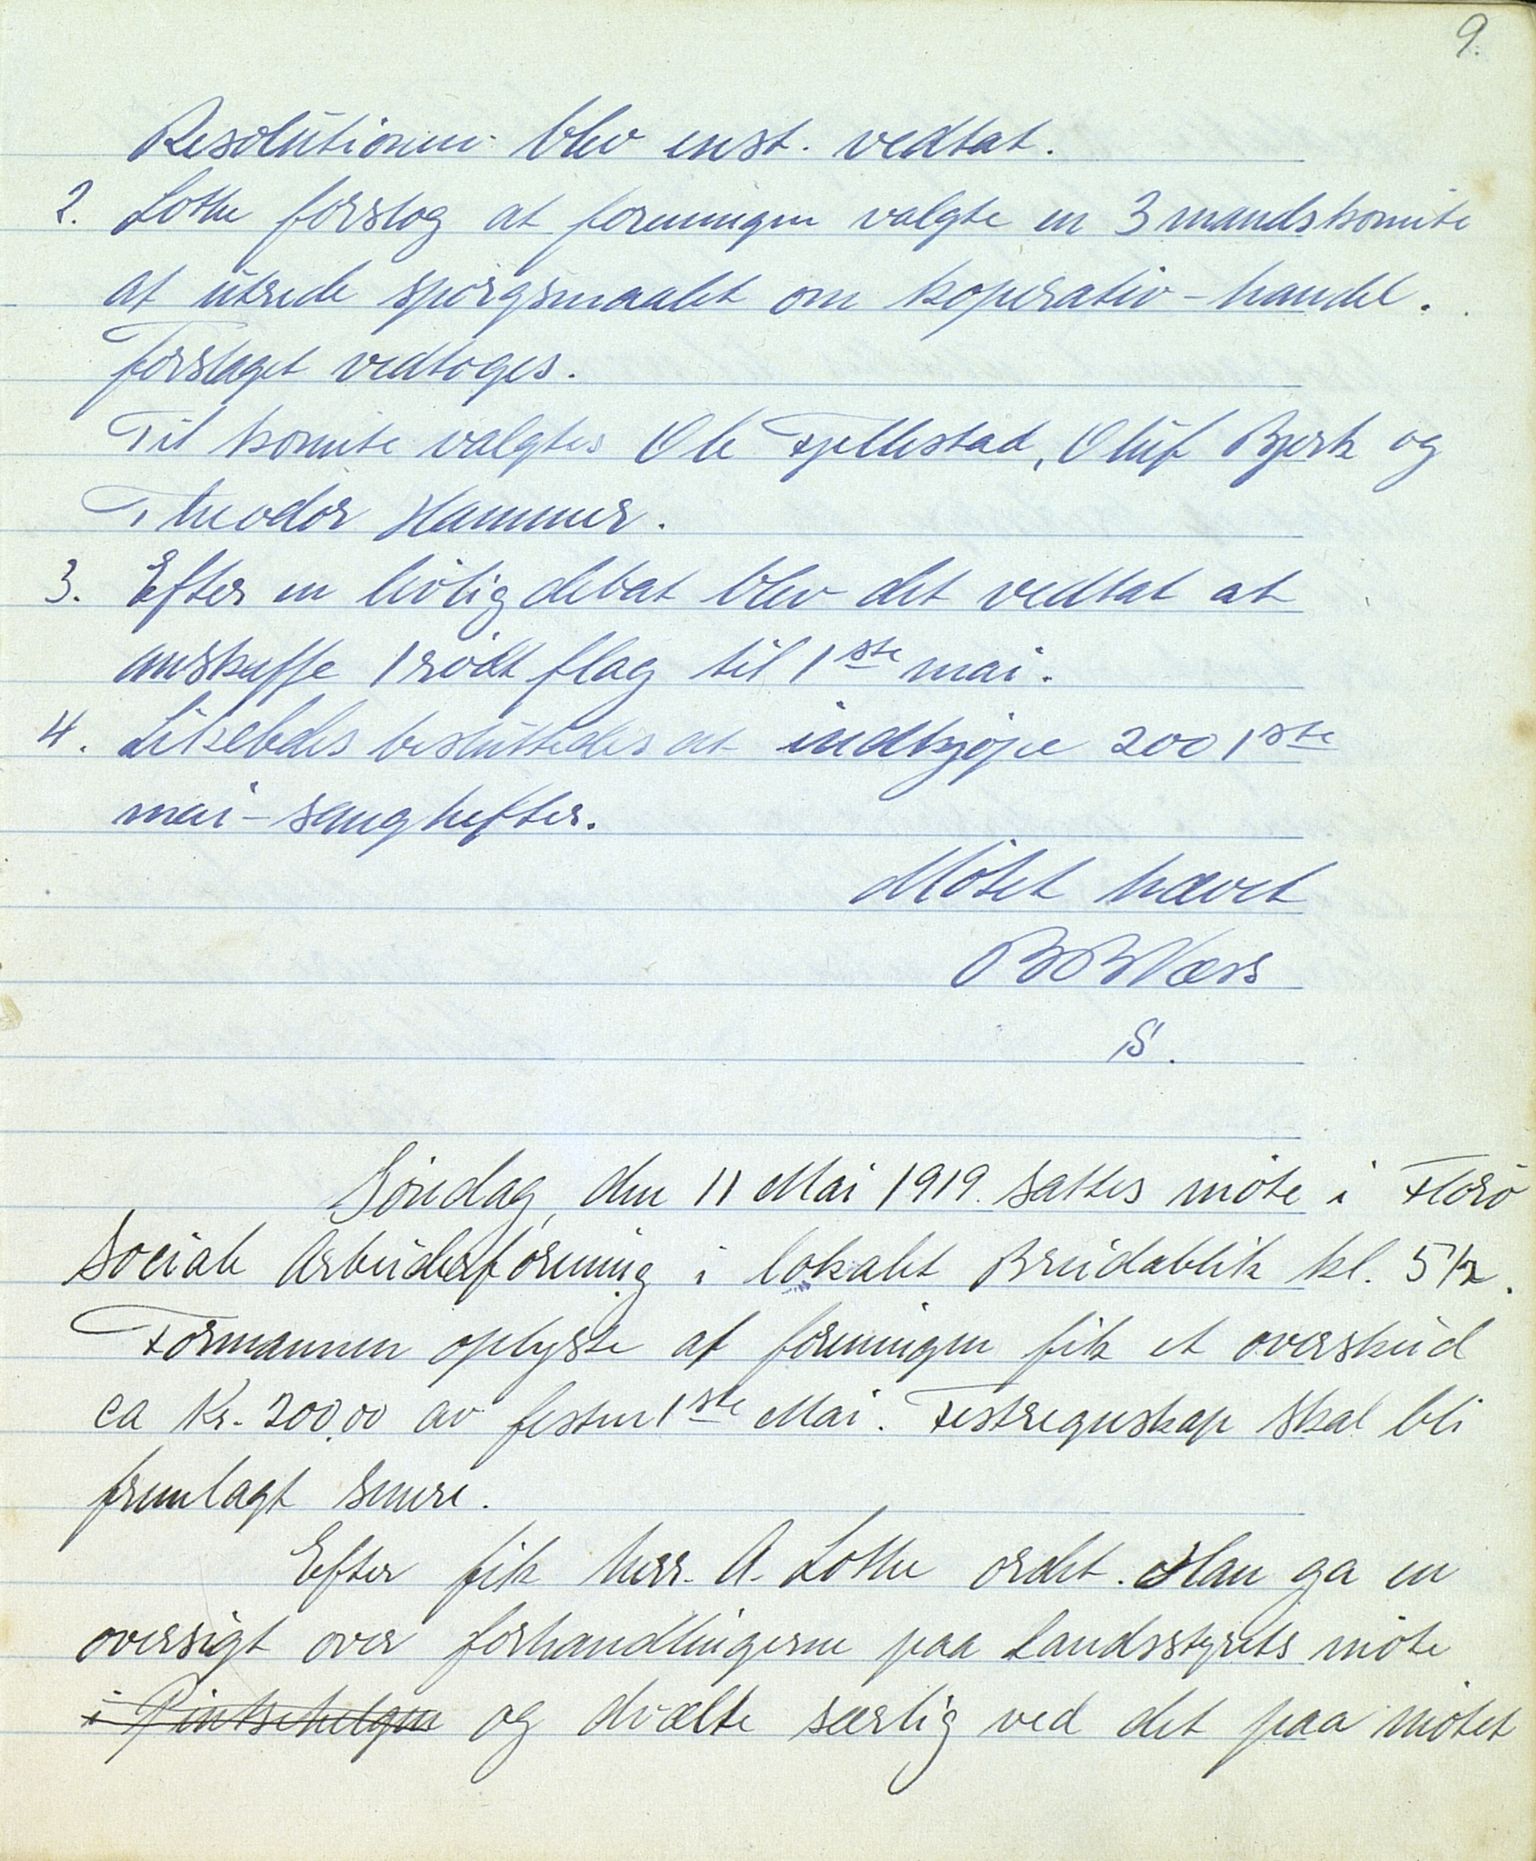 9.
Resolutionen blev enst. vedtat.
2. Lothe forslog at foreningen valgte en 3 mandskomite
at utrede spørgsmaalet om koperativ-handel.
Forslaget vedtoges.
Til komite valgtes Ole Fjellestad, Oluf Bjerk og
Theodor Hammer.
3. Efter en livlig debat blev det vedtat at
anskaffe 1 rødt flag til 1ste mai.
4. Likeledes besluttedes at indkjøpe 200 1ste
mai-sanghefter.
Møtet hævet
S.
Søndag, den 11 Mai 1919. sattes møte i Florø
Sociale Arbeiderforening i lokalet Breidablik kl. 5 1/2.
Formannen oplyste at foreningen fik et overskud
ca Kr. 200,00 av festen 1ste Mai. Festregnskap skal bli
fremlagt senere.
Efter fik herr. A. Lothe ordet. Han ga en
oversigt over forhandlingerne paa Landsstyrets møte
i Pinksehelgen og dvælte særlig ved det paa møtet